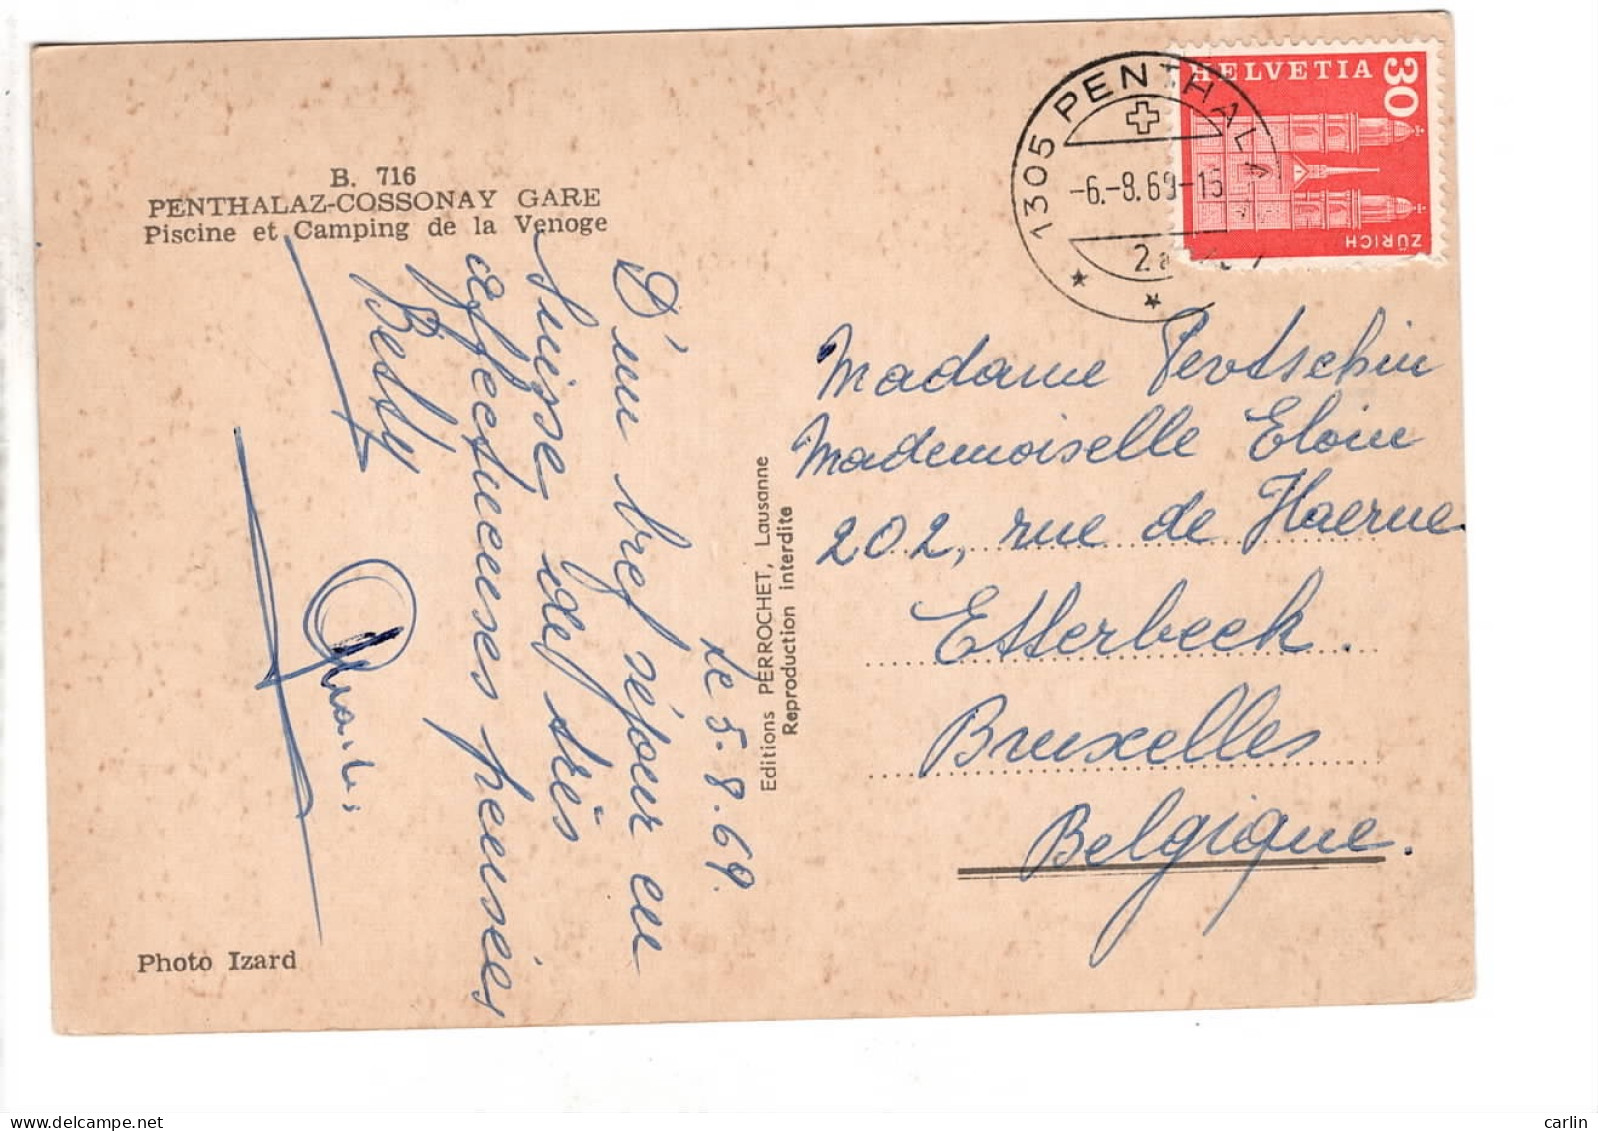 B. 716
PENTHALAZ-COSSONAY GARE
Piscine et Camping de la Venoge
le 5.8.69.
D'un bref séjour en
Suisse et très
affectueuses pensées
Betsy
Photo Izard
Editions PERROCHET, Lausanne
Reproduction interdite
HELVETIA
30
ZÜRICH
1305 PENTHALA
-6.-8.69-15
Madame
Mademoiselle Eloin
202, rue de Haerne
Etterbeek.
Bruxelles
Belgique.
carlin